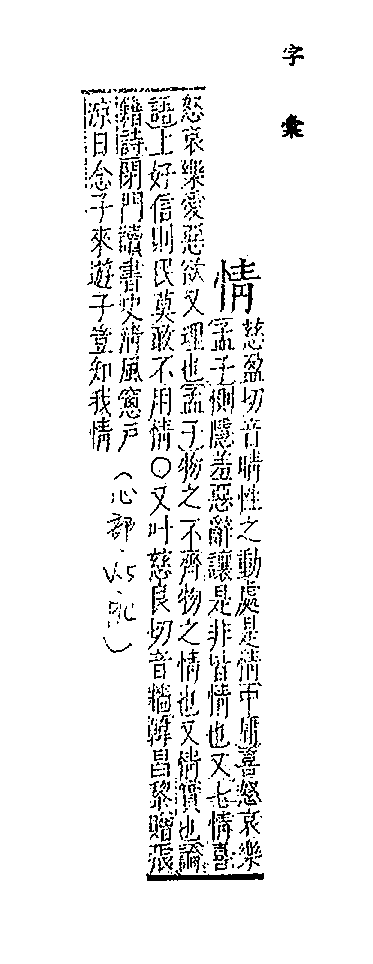 字彙
情
慈盈切音晴性之動處是情中庸喜怒哀樂
孟子惻隱羞惡辭讓是非皆情也又七情喜
怒哀樂愛惡欲又理也孟子物之不齊物之情也又情實也論
語上好信則民莫敢不用情○又叶慈良切音牆韓昌黎贈張
籍詩閉門讀書史清風窻戶
涼日念子來遊子豈知我情
(心部